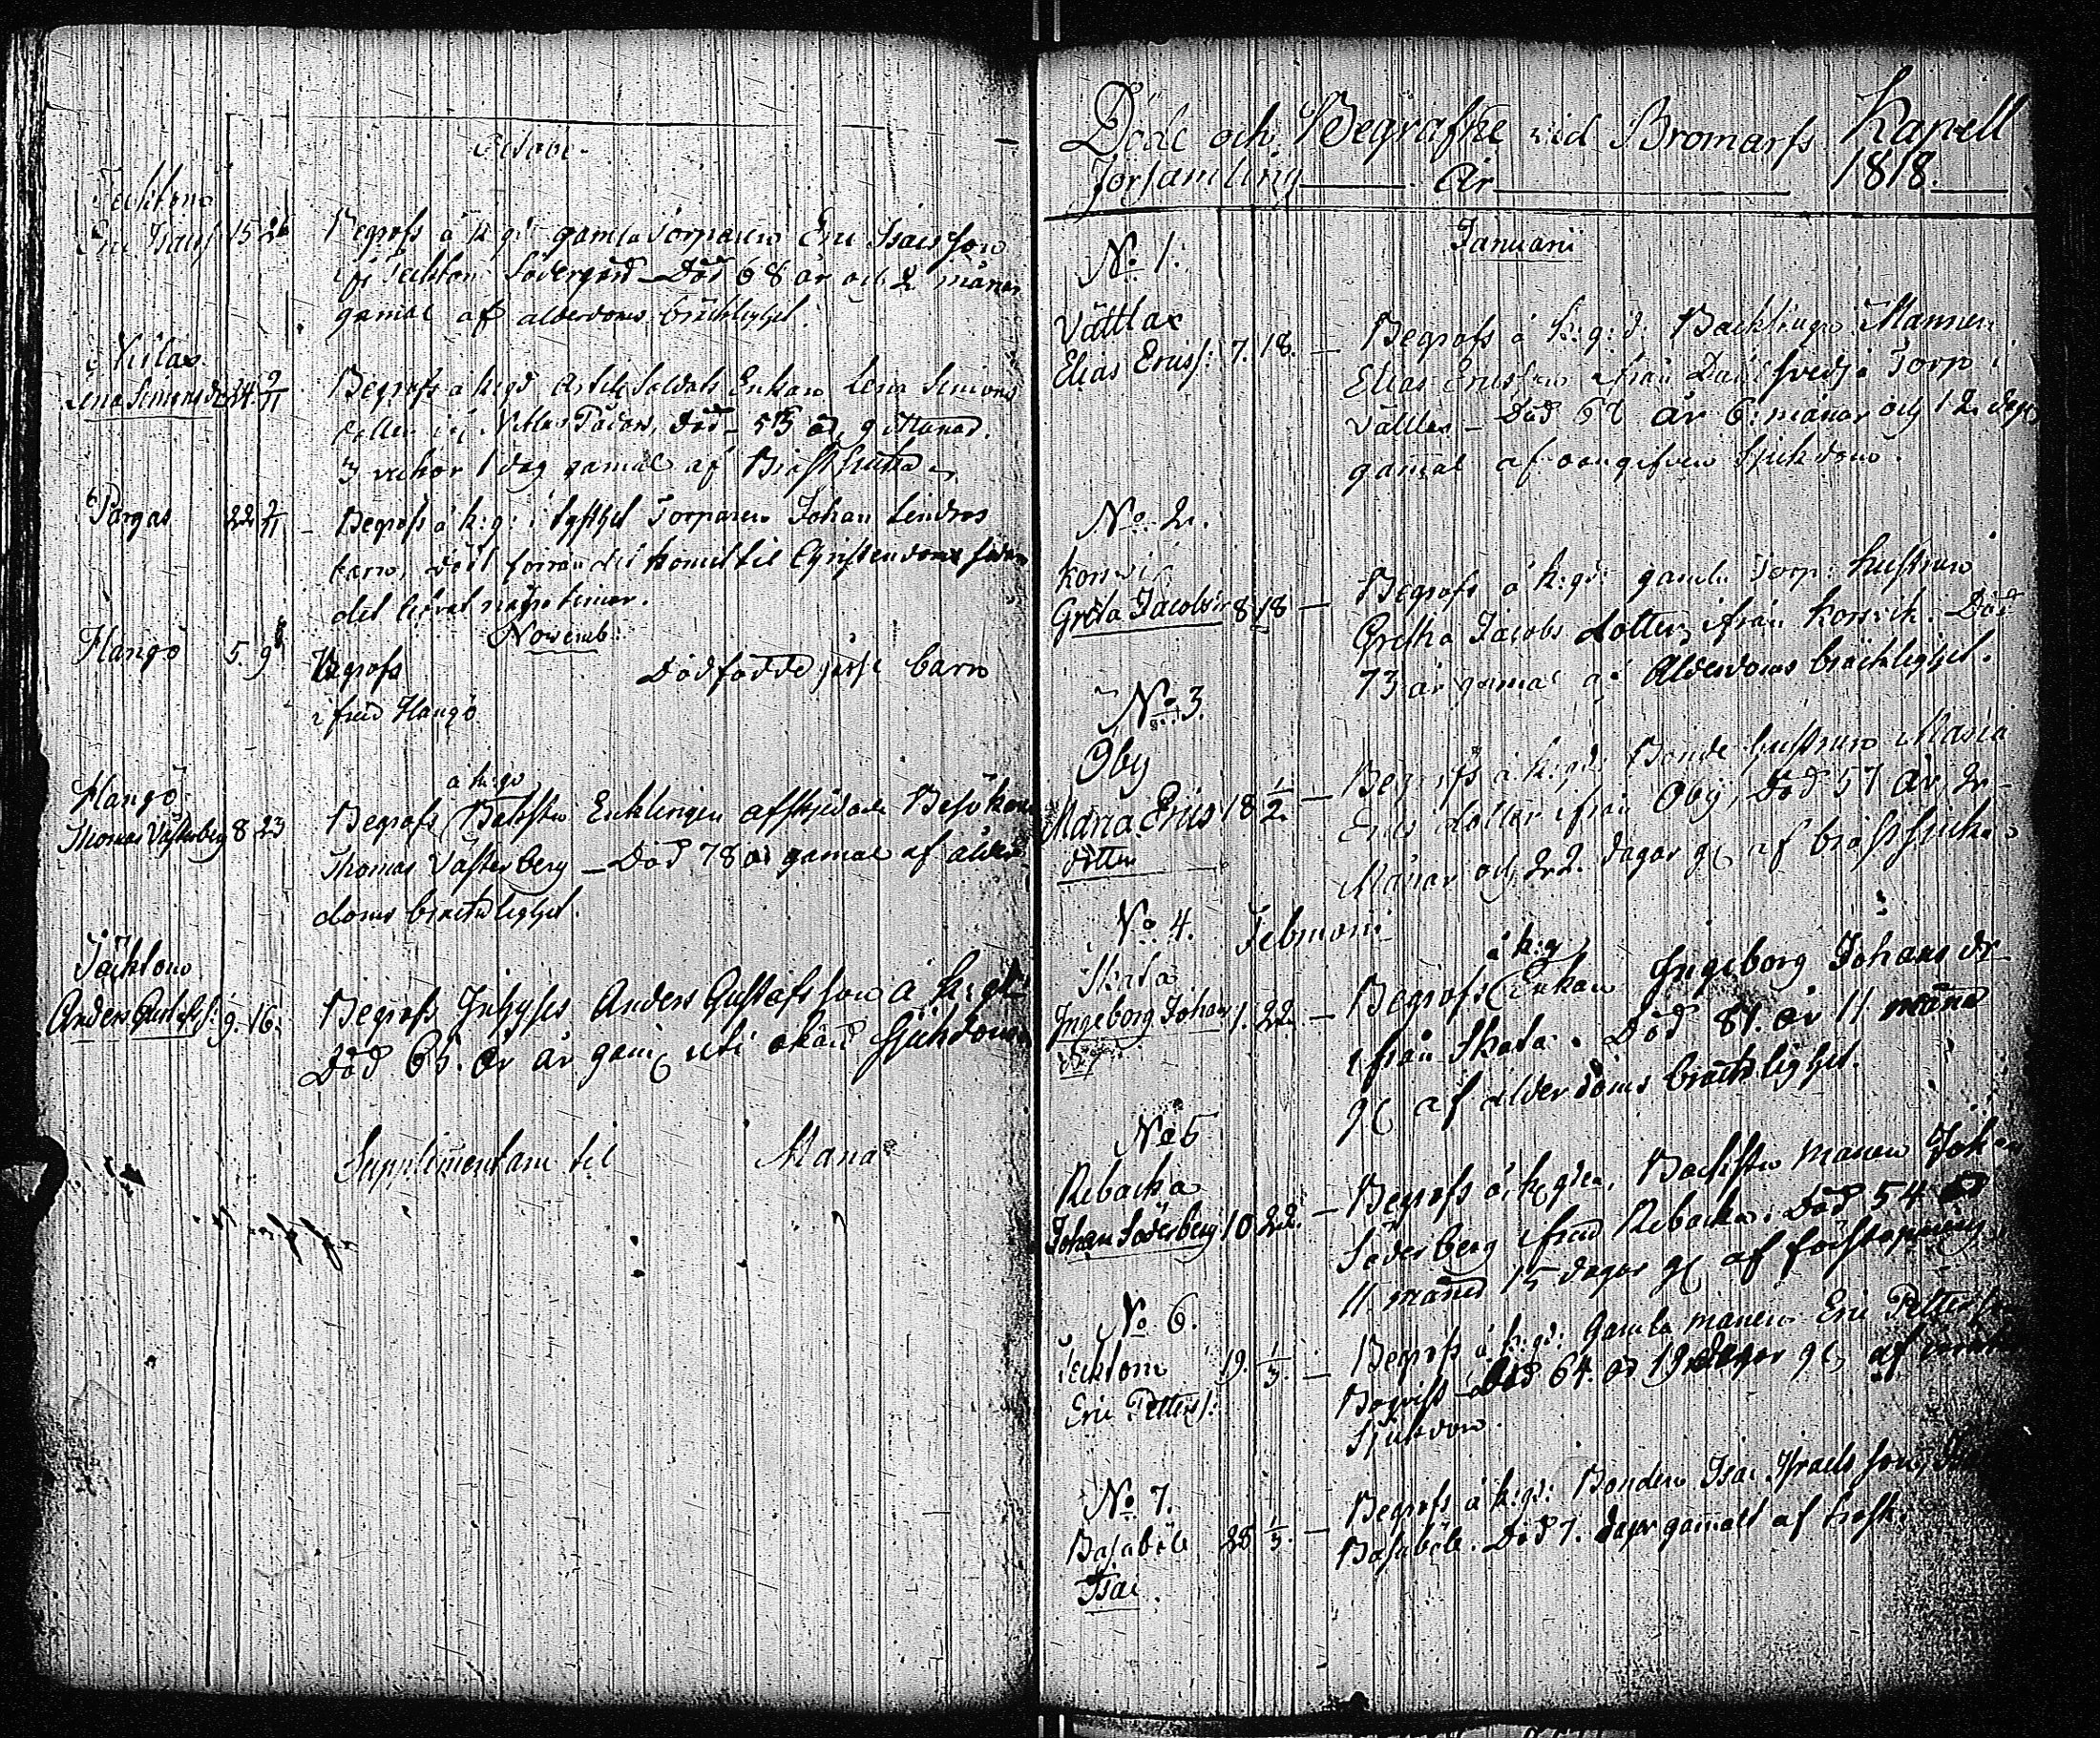 October
Tecktom
Eric Isacss: 15 26 Begrofs å k:gd gamla Torparen Eric Isacsson
ifr. Tecktom Södergård — Död 68 år och 2 månar
gamal af ålderdoms bräcklighet.
Vitlax
Lena Simonsdr 24 2/11 Begrofs å k:gd Artill: Soldats Enkan Lena Simons
dotter Död 53 år, 9 Månad.
3 vickor 1 dag gamal af Bröstsiuka
Pargas 22 2/11 Begrofs å k:g: i Torparen Johan Lindros
barn, dödt förrän det komit til Christendoms sedan
det lefvat några timar.
Novemb:
Hangö 5. 9 Begrofs Dödfödde barn
ifrån Hangö
Hangö
å k:gd
Thomas Vässterberg 8 23 Begrofs Enklingen afskjedade Besökaren
Thomas Vässterberg — Död 78 år gamal af ålder
doms bräcklighet.
Täcktom
Anders Gustafs: 9. 16. Begrofs Inhyses Anders Gustafsson å k:gd
Död 65. år gam: uti okänd sjukdom
Supplimentam til Mana
Döde och Begrafne vid Bromarfs Kapell
Församling År 1818.
Januarii
No 1.
Vättlax
Elias Erics: 7. 18. — Begrofs å k:g:d: Backstugu Mannen
Elias Ericsson ifrån Torp i
Vättlax — Död år 6: månar och 12 dagar
gamal af oangifven Sjukdom.
No 2.
Korsvik
Greta Jacobsdr 8 18 — Begrofs å k:gd: gamla Torp: hustrun
Gretha Jacobs dotter, ifrån Korsvik. Död
73 år gamal af Ålderdoms bräcklighet.
No 3.
Öby
Maria Erics 18 1/2 — Begrofs å k:gd: Bonde hustrun Maria
dotter
Erics dotter ifrån Öby, Död 57 år, 2
Månar och 22. dagar gl af bröstsjuka
No 4. Februarii
Skata
å k:g
Ingeborg Johans 1. 22. — Begrofs Enkan Ingeborg Johans dr
dr
ifrån Skata. Död 81. år 11 månad
gl af ålderdoms bräcklighet.
No 5
Rebacka
Johan Söderberg 10 22. — Begrofs å k:gden, Backstu manen Johan
Söderberg ifrån Rebacka. Död 54 år
11 månad 15 dagar gl af förstoppning
No 6.
Tecktom 19. 1/3. — Begrofs å k:gd: Gamla manen Eric Petterson
Eric Petters:
Död 64. år 19 dagar gl, af
Sjukdom.
No 7.
Basaböle 25 1/3. — Begrofs å k:gd: Bonden Isac Israelsson,
Isac.
Basaböle. Död 7. dagar gamalt af